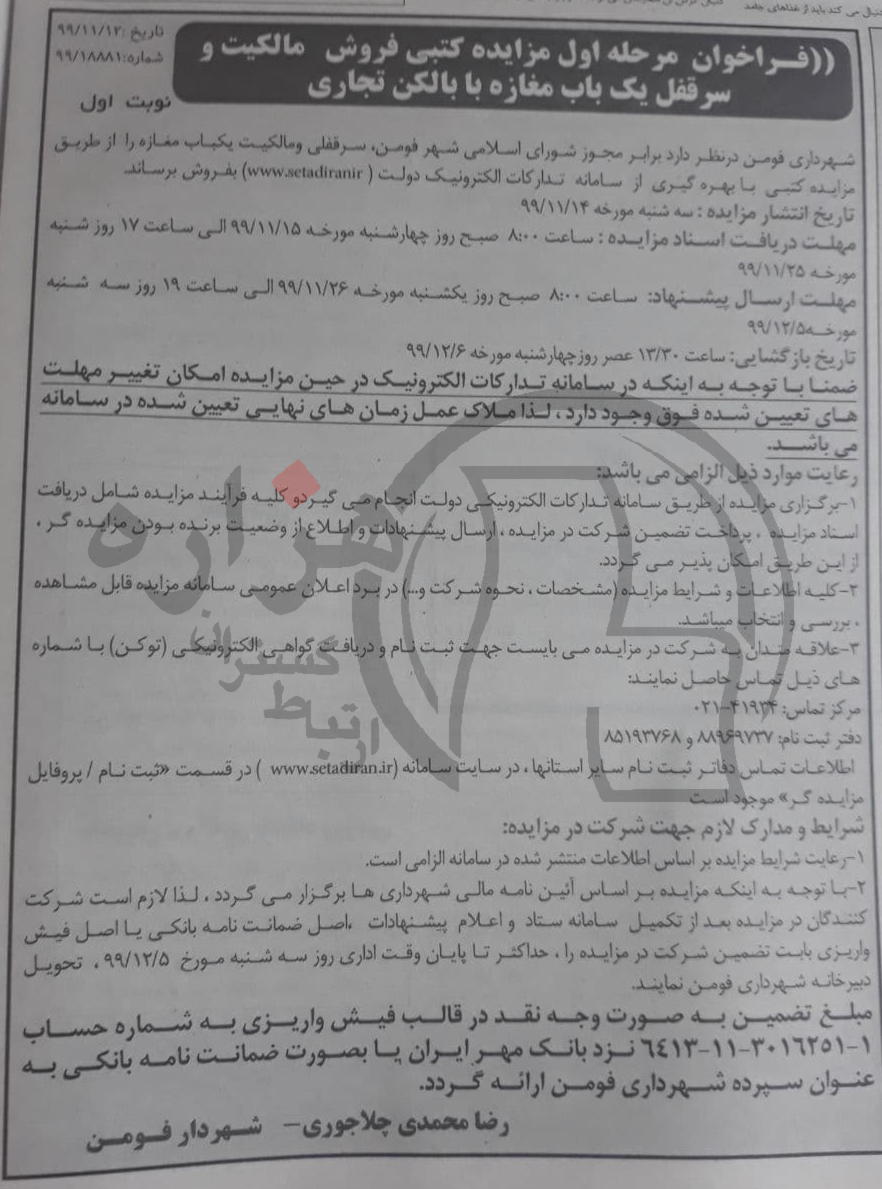 تاریخ :۹۹/۱۱/۱۲
شماره:۹۹/۱۸۸۸۱
نوبت اول
((فـراخوان مرحله اول مزایده کتبی فروش مالکیت و
سرقفل یک باب مغازه با بالکن تجاری
شهرداری فومن درنظر دارد برابر مجوز شورای اسلامی شهر فومن، سرقفلی ومالکیت یکباب مغازه را از طریق
مزایده کتبی با بهره گیری از سامانه تدارکات الکترونیک دولت ( www.setadiranir) بفروش برساند.
تاریخ انتشار مزایده : سه شنبه مورخه ۹۹/۱۱/۱۴
مهلت دریافت اسناد مزایده : ساعت ۸:۰۰ صبح روز چهارشنبه مورخه ۹۹/۱۱/۱۵ الی ساعت ۱۷ روز شنبه
مورخه ۹۹/۱۱/۲۵
مهلت ارسال پیشنهاد: ساعت ۸:۰۰ صبح روز یکشنبه مورخه ۹۹/۱۱/۲۶ الی ساعت ۱۹ روز سه شنبه
مورخه۹۹/۱۲/۵
تاریخ بازگشایی: ساعت ۱۳/۳۰ عصر روز چهارشنبه مورخه ۹۹/۱۲/۶
ضمنا با توجه به اینکه در سامانه تدارکات الکترونیک در حین مزایده امکان تغییر مهلت
های تعیین شده فوق وجود دارد ، لذا ملاک عمل زمان های نهایی تعیین شده در سامانه
می باشد.
رعایت موارد ذیل الزامی می باشد:
۱-برگزاری مزایده از طریق سامانه تدارکات الکترونیکی دولت انجام می گیردو کلیه فرآیند مزایده شامل دریافت
اسناد مزایده ، پرداخت تضمین شرکت در مزایده ، ارسال پیشنهادات و اطلاع از وضعیت برنده بودن مزایده گر ،
از این طریق امکان پذیر می گردد.
۲-کلیه اطلاعات و شرایط مزایده (مشخصات ، نحوه شرکت و...) در برد اعلان عمومی سامانه مزایده قابل مشاهده
، بررسی و انتخاب میباشد.
۳-علاقه مندان به شرکت در مزایده می بایست جهت ثبت نام و دریافت گواهی الکترونیکی (توکن) با شماره
های ذیل تماس حاصل نمایند:
مرکز تماس: ۴۱۹۳۴-۰۲۱
دفتر ثبت نام: ۸۸۹۶۹۷۳۷ و ۸۵۱۹۳۷۶۸
اطلاعات تماس دفاتر ثبت نام سایر استانها ، در سایت سامانه (www.setadiran.ir ) در قسمت «ثبت نام / پروفایل
مزایده گر» موجود است
شرایط و مدارک لازم جهت شرکت در مزایده:
۱-رعایت شرایط مزایده بر اساس اطلاعات منتشر شده در سامانه الزامی است.
۲-با توجه به اینکه مزایده بر اساس آئین نامه مالی شهرداری ها برگزار می گردد ، لذا لازم است شرکت
کنندگان در مزایده بعد از تکمیل سامانه ستاد و اعلام پیشنهادات ،اصل ضمانت نامه بانکی یا اصل فیش
واریزی بابت تضمین شرکت در مزایده را ، حداکثر تا پایان وقت اداری روز سه شنبه مورخ ۹۹/۱۲/۵ ، تحویل
دبیرخانه شهرداری فومن نمایند.
مبلغ تضمین به صورت وجه نقد در قالب فیش واریزی به شماره حساب
۶۴۱۳-۱۱-۳۰۱۶۲۵۱-۱ نزد بانک مهر ایران یا بصورت ضمانت نامه بانکی به
عنوان سپرده شهرداری فومن ارائه گردد.
رضا محمدی چلاجوری- شهردار فومن
هزاره
گسترش
ارتباط